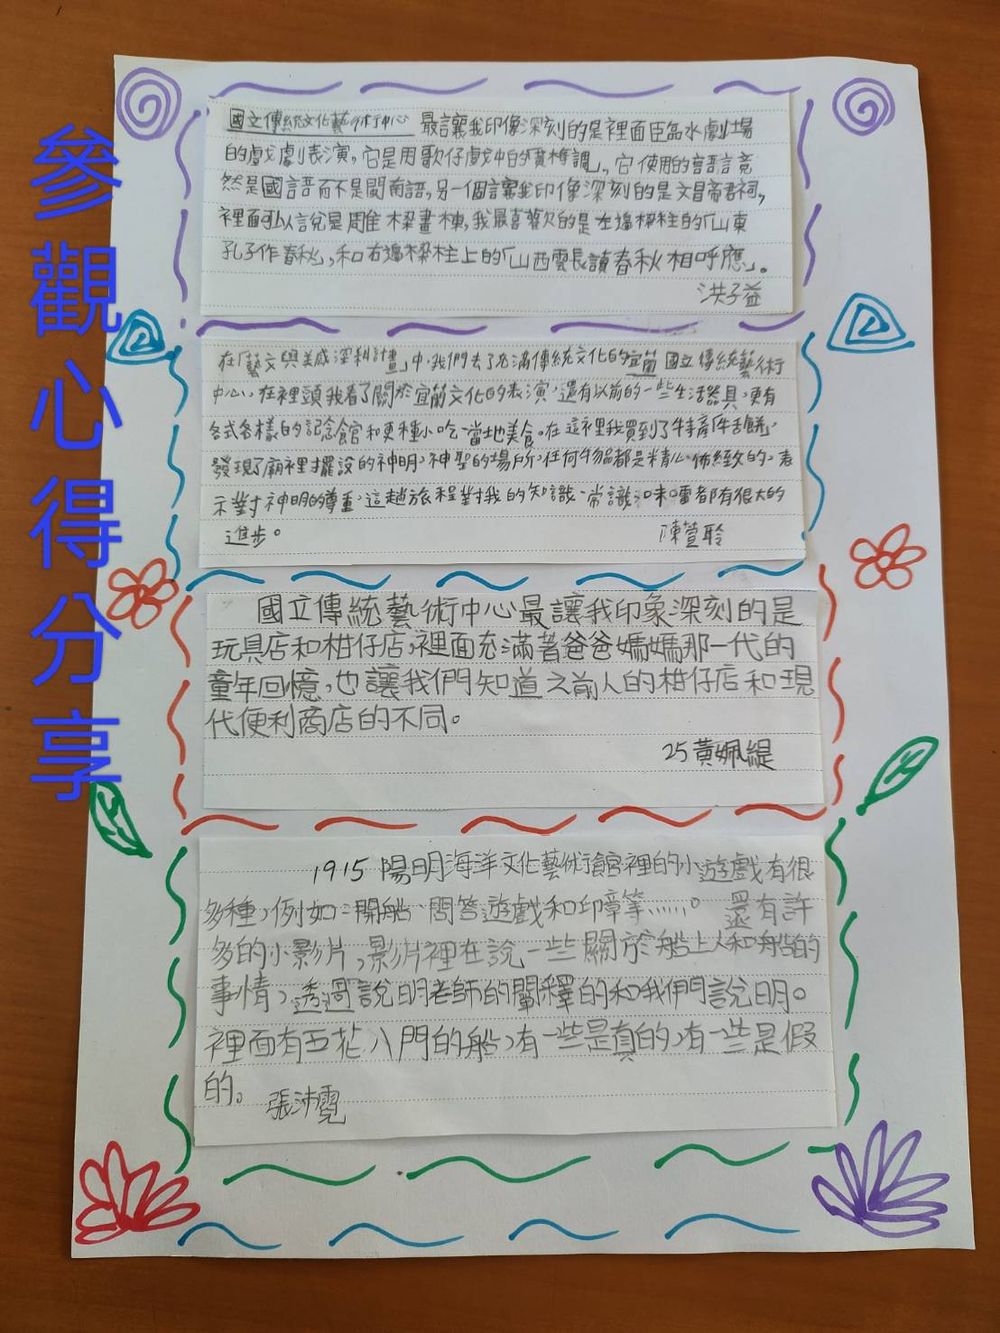 參觀心得分享
國立傳統文化藝術中心 最讓我印像深刻的是裡面臨水劇場
的戲劇表演，它是用歌仔戲中的「賣椎調」，它使用的語言竟
然是國語而不是閩南語，另一個讓我印像深刻的是文昌帝君祠，
裡面可以說是雕樑畫棟，我最喜歡的是左邊樑柱的「山東
孔子作春秋」，和右邊樑柱上的「山西雲長讀春秋相呼應」。
洪子益
在「藝文與美感深耕計畫」中，我們去了充滿傳統文化的宜蘭國立傳統藝術
中心，在裡頭我看了關於宜蘭文化的表演，還有以前的一些生活器具，更有
各式各樣的記念館和更種小吃、當地美食。在這裡我買到了特產牛舌餅，
發現了廟裡擺設的神明，神聖的場所，任何物都是精心佈緻的，表
示對神明的尊重，這趟旅程對我的知識、常識和味蕾都有很大的
進步。 陳萱聆
國立傳統藝術中心最讓我印象深刻的是
玩具店和柑仔店，裡面充滿著爸爸媽媽那一代的
童年回憶，也讓我們知道之前人的柑仔店和現
代便利商店的不同。
25黃姵緹
1915陽明海洋文化藝術館裡的小遊戲有很
多種，例如：開船、問答遊戲和印章等……。還有許
多的小影片，影片裡在說一些關於船上人和船的
事情，透過說明老師的闡釋的和我們說明。
裡面有五花八門的船，有一些是真的，有一些是假
的。 張沛霓